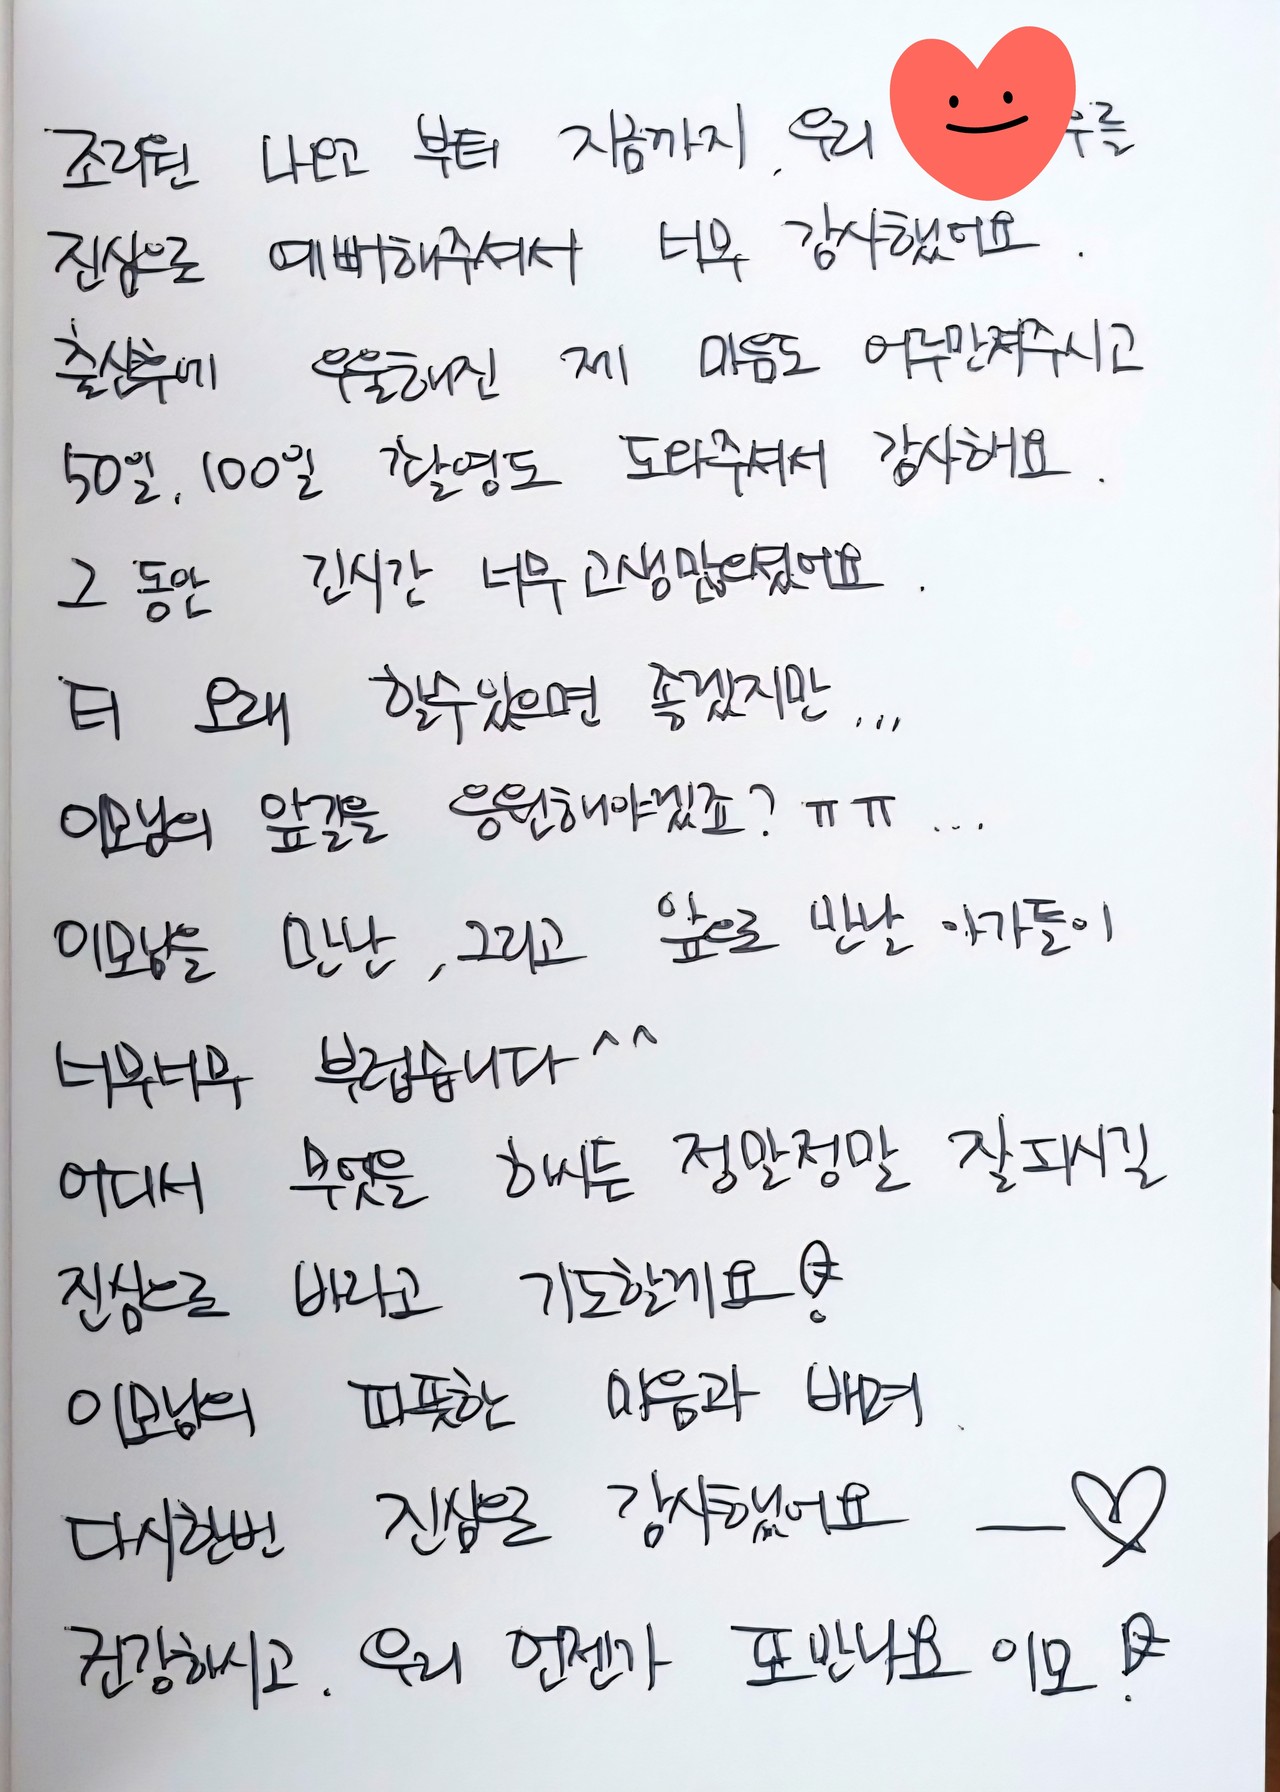 조리원 나오고 부터 지금까지, 우리 우를
진심으로 예뻐해주셔서 너무 감사했어요.
출산후에 우울해진 제 마음도 어루만져주시고
50일, 100일 촬영도 도와주셔서 감사해요.
그 동안 긴시간 너무 고생많으셨어요.
더 오래 할수있으면 좋겠지만...
이모님의 앞길을 응원해야겠죠? ㅠㅠ...
이모님을 만난, 그리고 앞으로 만날 아가들이
너무너무 부럽습니다^^
어디서 무엇을 하시든 정말정말 잘되시길
진심으로 바라고 기도할게요
이모님의 따뜻한 마음과 배려
다시한번 진심으로 감사했어요 ―♡
건강하시고, 우리 언젠가 또만나요 이모